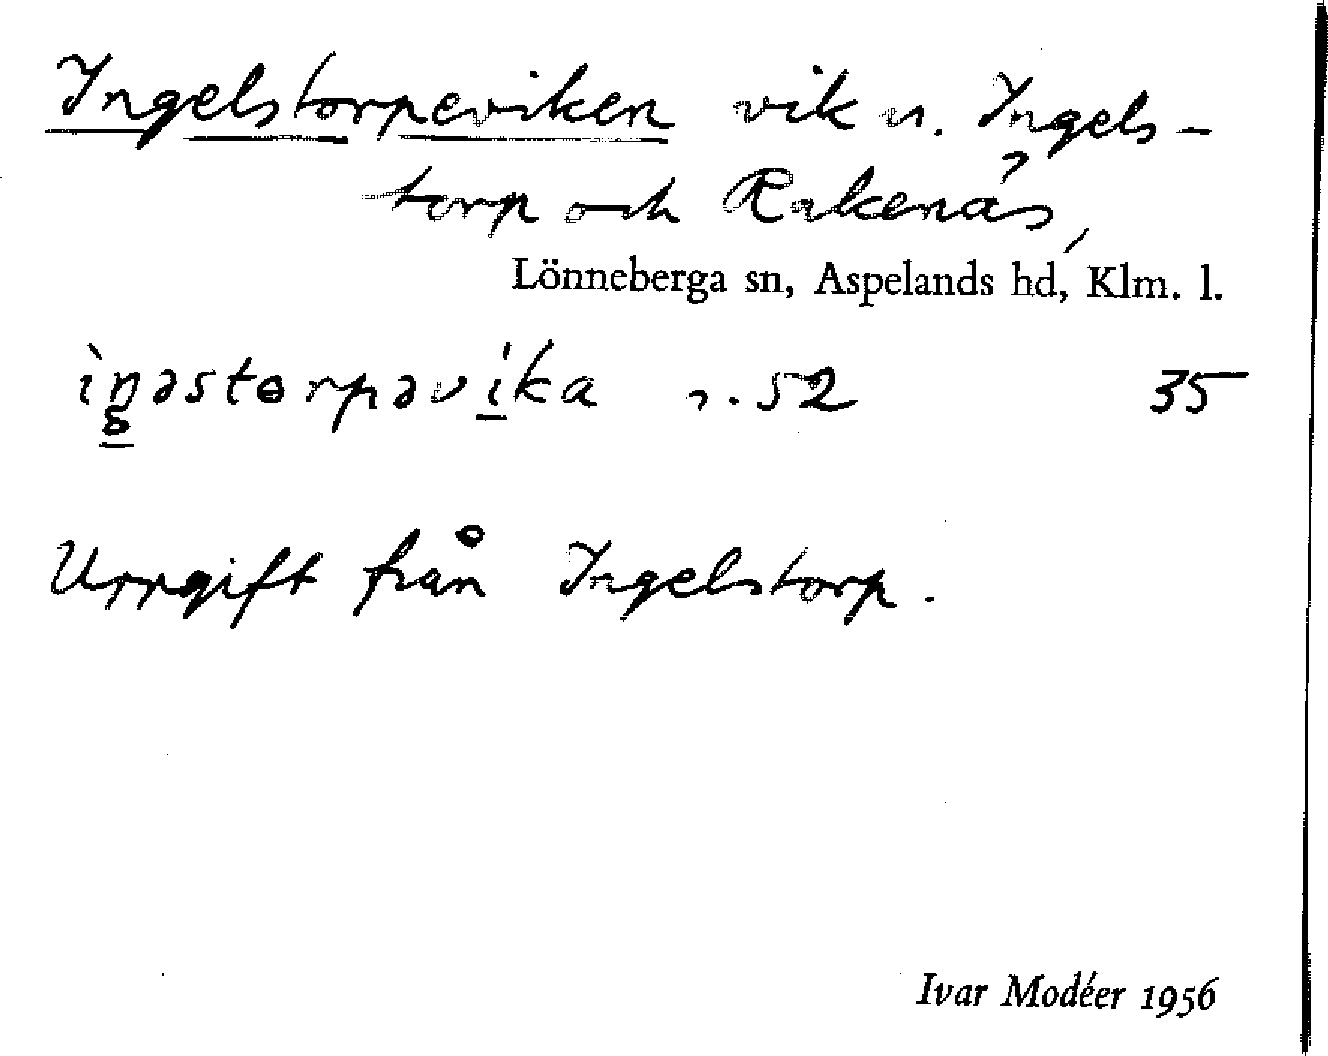 Ingelstorpeviken vik u. Ingels-
torp och Rakenäs,
Lönneberga sn, Aspelands hd, Klm. l.
ìŋəstɵrpəvíka r. 52 35
Uppgift från Ingelstorp.
Ivar Modéer 1956